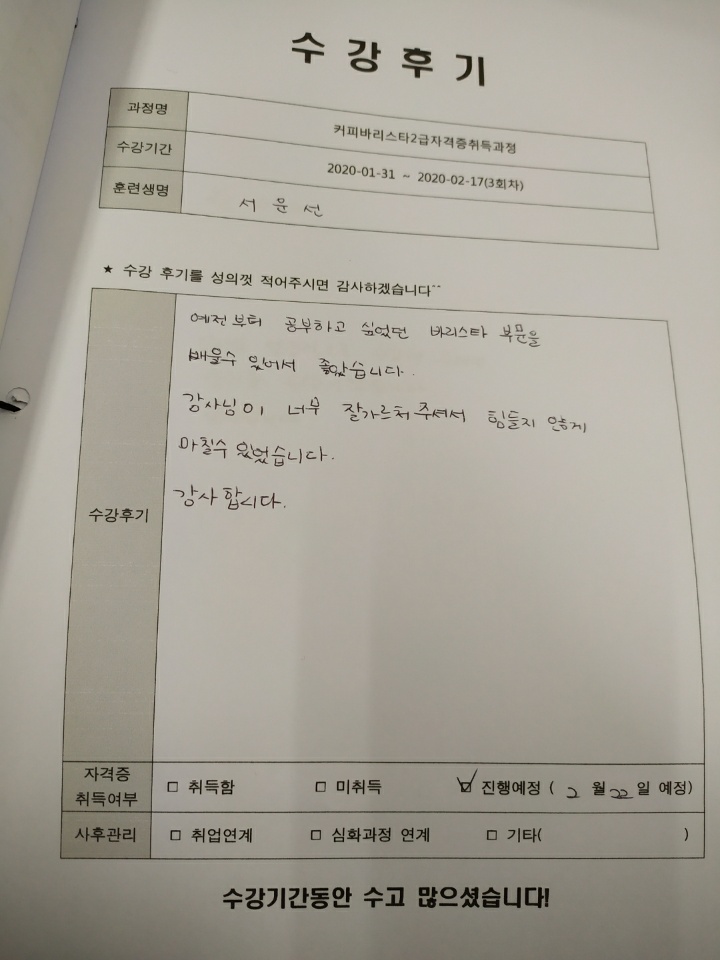 수강후기
과정명 커피바리스타2급자격증취득과정
수강기간 2020-01-31 ~ 2020-02-17(3회차)
훈련생명 서윤선
★ 수강 후기를 성의껏 적어주시면 감사하겠습니다^^
수강후기
예전부터 공부하고 싶었던 바리스타 부문을
배울수 있어서 좋았습니다.
강사님이 너무 잘가르쳐주셔서 힘들지 않게
마칠수 있었습니다.
감사합니다.
자격증 취득여부 □ 취득함 □ 미취득 ☑ 진행예정 ( 2 월 22 일 예정)
사후관리 □ 취업연계 □ 심화과정 연계 □ 기타( )
수강기간동안 수고 많으셨습니다!